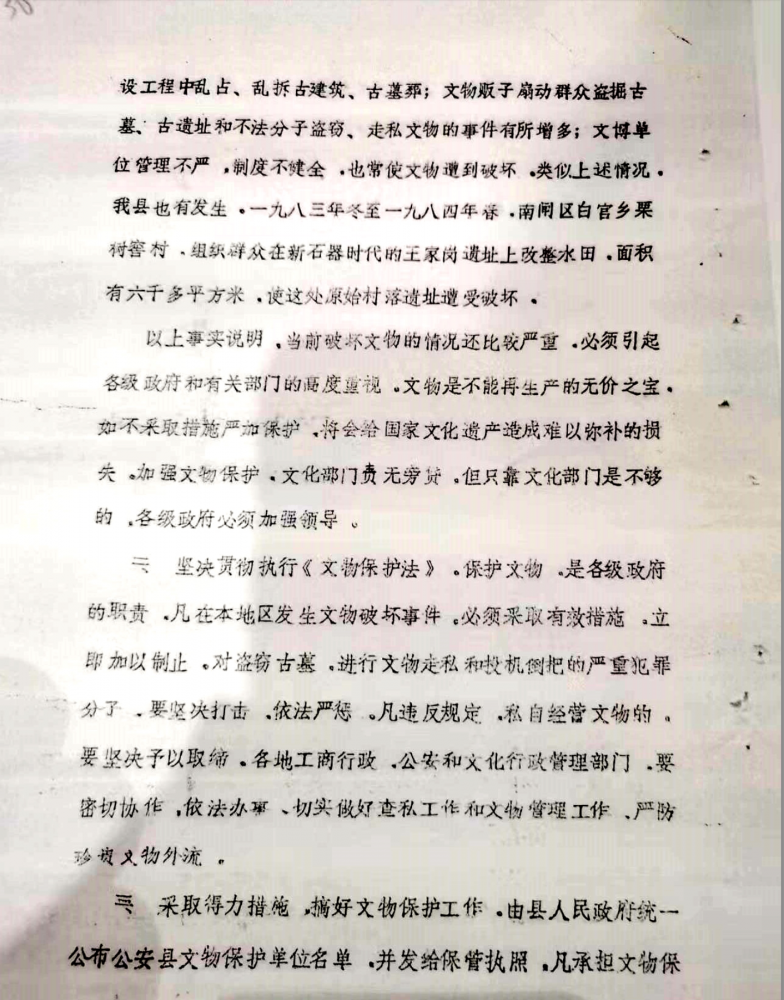 30
设工程中乱占、乱拆古建筑、古墓葬；文物贩子扇动群众盗掘古
墓、古遗址和不法分子盗窃、走私文物的事件有所增多；文博单
位管理不严，制度不健全，也常使文物遭到破坏。类似上述情况。
我县也有发生。一九八三年冬至一九八四年春，南闸区白宫乡栗
树窖村，组织群众在新石器时代的王家岗遗址上改整水田，面积
有六千多平方米，使这处原始村落遗址遭受破坏。
以上事实说明，当前破坏文物的情况还比较严重，必须引起
各级政府和有关部门的高度重视。文物是不能再生产的无价之宝，
如不采取措施严加保护，将会给国家文化遗产造成难以弥补的损
失。加强文物保护，文化部门责无旁贷。但只靠文化部门是不够
的，各级政府必须加强领导。
二 坚决贯彻执行《文物保护法》。保护文物，是各级政府
的职责，凡在本地区发生文物破坏事件，必须采取有效措施，立
即加以制止。对盗窃古墓，进行文物走私和投机倒把的严重犯罪
分子，要坚决打击，依法严惩。凡违反规定，私自经营文物的。
要坚决予以取缔。各地工商行政，公安和文化行政管理部门，要
密切协作，依法办事、切实做好查私工作和文物管理工作，严防
珍贵文物外流。
三 采取得力措施，搞好文物保护工作。由县人民政府统一
公布公安县文物保护单位名单，并发给保管执照，凡承担文物保